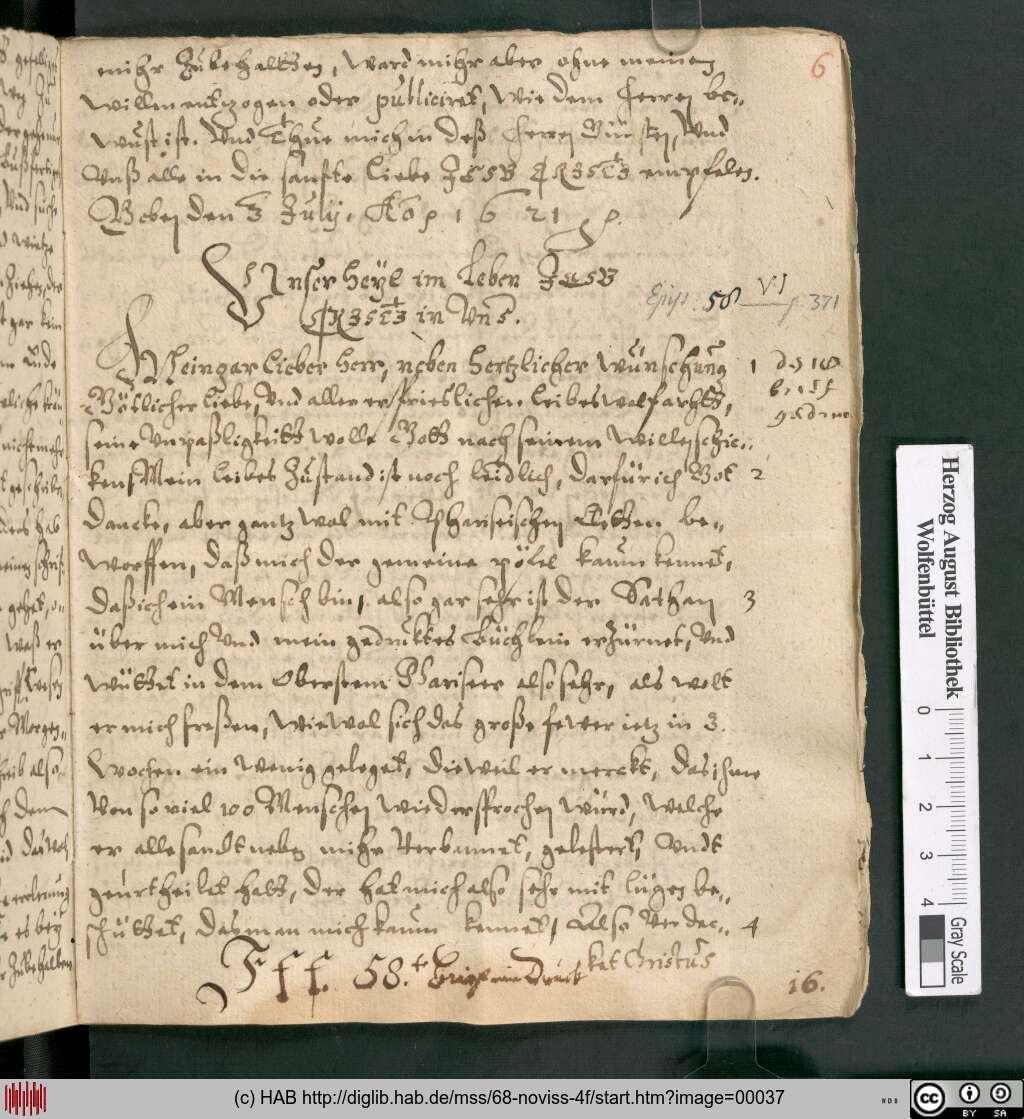 6
mihr Zubehaltten, ward mihr aber ohne meinen
willn entzogen oder publiciret, wie dem Herren be=
wust ist. Und Thue mich in deß Herren Gunsten, Und
Unß alle in die sanfte liebe JESU CHRISTI empfelen.
Geben den 3 July. Ao 1621
Unser Heyl im Leben JESU
CHRISTI in Uns.
Epist. 58 VI p. 371
Mein gar lieber Herr, neben Hertzlicher wünschung 1
Götlicher liebe, Und aller ersprieslichen leibeswolfarhtt,
seine Unpaßligkeitt wolle Gott nach seinem willen schic=
ken Mein leibes Zustand ist noch leidlich, darfür ich Got 2
dancke, aber gantz wol mit Phariseischen Kletten be=
worffen, daß mich der gemeine pöfel kaum kennet,
daß ich ein Mensch bin, also gar sehr ist der Sathan 3
über mich Und mein gedrucktes Büchlein erZürnet, Und
wüttet in dem Obersten Pariseer also sehr, als wolt
er mich freßen, Wiewol sich das große fewer ietz in 3.
wochen ein wenig geleget, dieweil er merckt, das ihme
Von so viel 100 Menschen wiedersprochen würd, welche
er alle sandt neben mihr Verbannet, gelestert, Undt
geurtheilet hatt, der hat mich also sehr mit lügen be=
schüttet, das man mich kaum kennet, Also Verdec= 4
ket Christus
58. t Brief im Druck
16.
Herzog August Bibliothek
Wolfenbüttel
0 1 2 3 4
Gray Scale
(c) HAB http://diglib.hab.de/mss/68-noviss-4f/start.htm?image=00037
cc BY SA